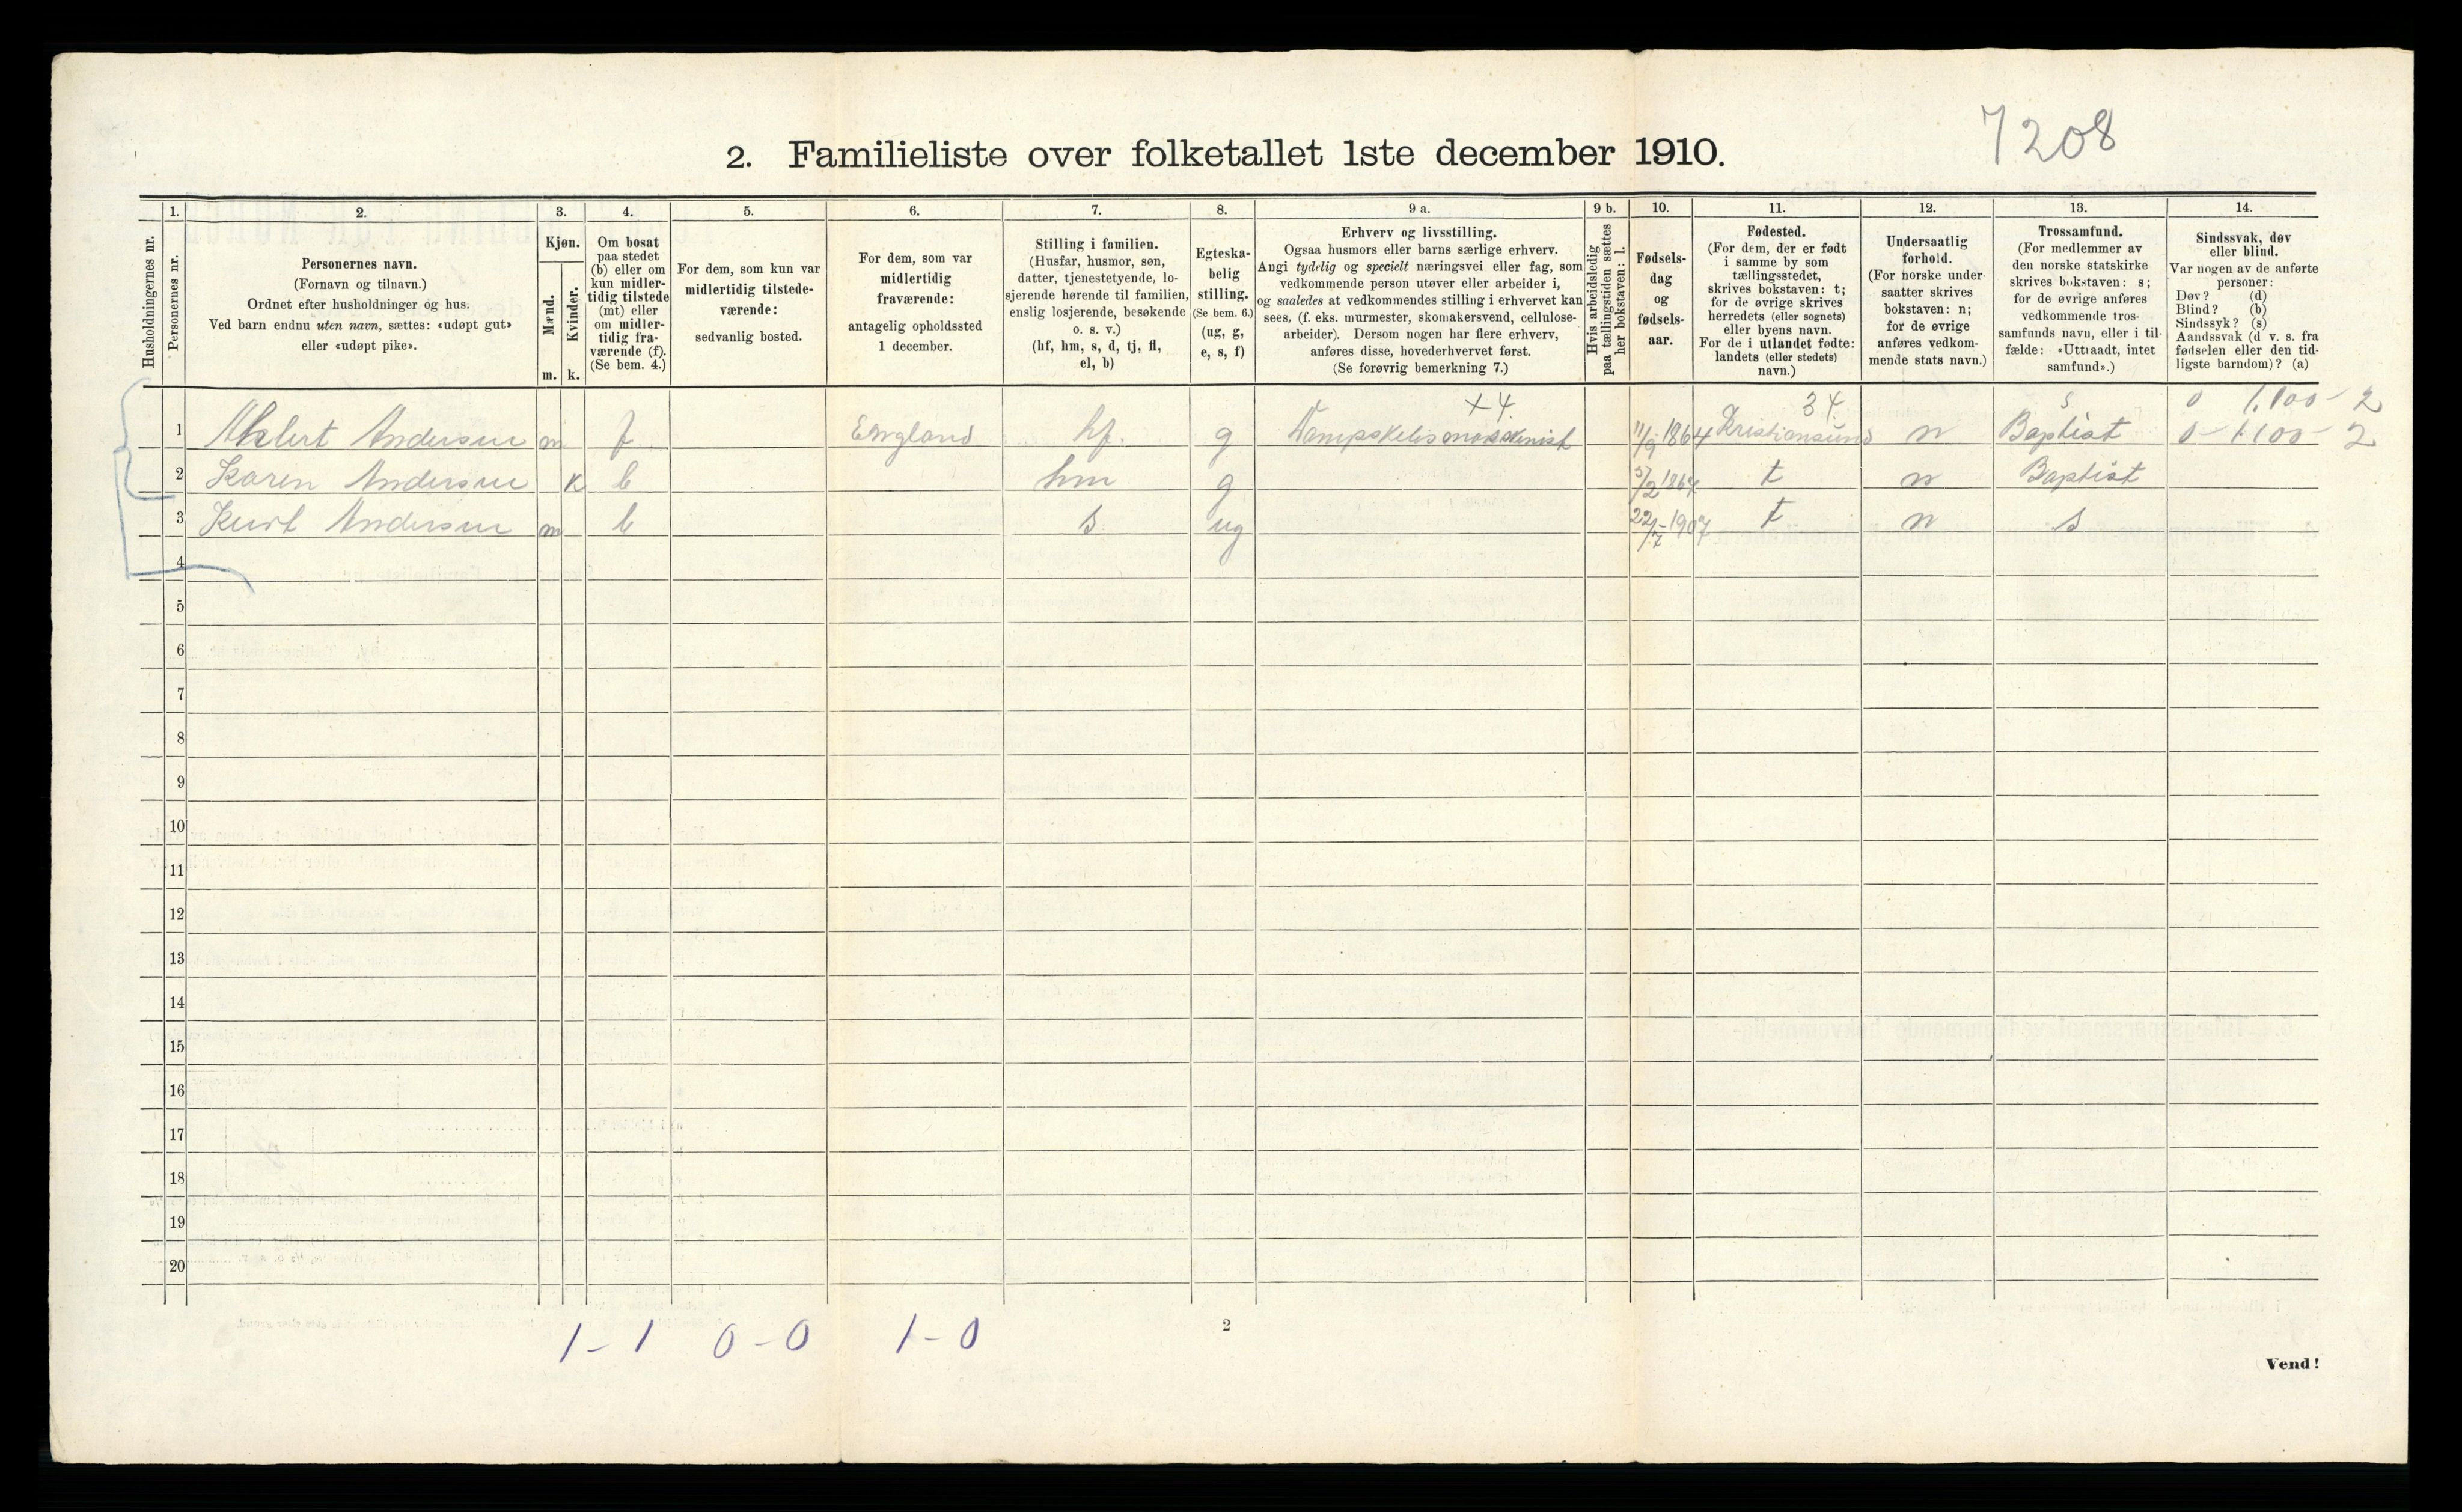 7208
2. Familieliste over folketallet 1ste december 1910.
Husholdningernes nr.
1.
Personernes nr.
2.
Personernes navn.
(Fornavn og tilnavn.)
Ordnet efter husholdninger og hus.
Ved barn endnu uten navn, sættes: «udøpt gut»
eller «udøpt pike».
3.
Kjøn.
Mænd.
Kvinder.
m. k.
4.
Om bosat
paa stedet
(b) eller om
kun midler-
tidig tilstede
(mt) eller
om midler-
tidig fra-
værende (f).
(Se bem. 4.)
5.
For dem, som kun var
midlertidig tilstede-
værende:
sedvanlig bosted.
6.
For dem, som var
midlertidig
fraværende:
antagelig opholdssted
1 december.
7.
Stilling i familien.
(Husfar, husmor, søn,
datter, tjenestetyende, lo-
sjerende hørende til familien,
enslig losjerende, besøkende
o. s. v.)
(hf, hm, s, d, tj, fl,
el, b)
8.
Egteska-
belig
stilling.
(Se bem. 6.)
(ug, g,
e, s, f)
9 a.
Erhverv og livsstilling.
Ogsaa husmors eller barns særlige erhverv.
Angi tydelig og specielt næringsvei eller fag, som
vedkommende person utøver eller arbeider i,
og saaledes at vedkommendes stilling i erhvervet kan
sees, (f. eks. murmester, skomakersvend, cellulose-
arbeider). Dersom nogen har flere erhverv,
anføres disse, hovederhvervet først.
(Se forøvrig bemerkning 7.)
9 b.
Hvis arbeidsledig
paa tællingstiden sættes
her bokstaven: l.
10.
Fødsels-
dag
og
fødsels-
aar.
11.
Fødested.
(For dem, der er født
i samme by som
tællingsstedet,
skrives bokstaven: t;
for de øvrige skrives
herredets (eller sognets)
eller byens navn.
For de i utlandet fødte:
landets (eller stedets)
navn.)
12.
Undersaatlig
forhold.
(For norske under-
saatter skrives
bokstaven: n;
for de øvrige
anføres vedkom-
mende stats navn.)
13.
Trossamfund.
(For medlemmer av
den norske statskirke
skrives bokstaven: s;
for de øvrige anføres
vedkommende tros-
samfunds navn, eller i til-
fælde: «Uttraadt, intet
samfund».)
14.
Sindssvak, døv
eller blind.
Var nogen av de anførte
personer:
Døv? (d)
Blind? (b)
Sindssyk? (s)
Aandssvak (d v. s. fra
fødselen eller den tid-
ligste barndom)? (a)
x4. 34. s 0 1.100 - 2
1 Andersen m f England hf. g 11/9 1864 Kristiansund n Baptist 0 - 1.100 - 2
2 Karen Andersen k b hm g 5/2 1867 t n Baptist
3 Kurt Andersen m b s ug 22/7-1907 t n s
4
5
6
7
8
9
10
11
12
13
14
15
16
17
18
19
20
1 - 1 0 - 0 1 - 0
2
Vend!